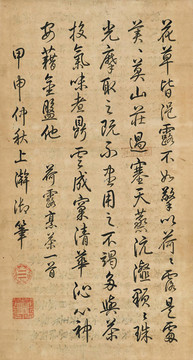 花草皆浥露不如擎以荷〻之露最
英山莊過塞天蒸沆瀣顆〻珠
光摩取之既不盡用之不竭多與茶
投氣味煮鼎雲成窠清華沁心神
安藉金盤他 荷露烹茶一首
甲申仲秋上澣御筆